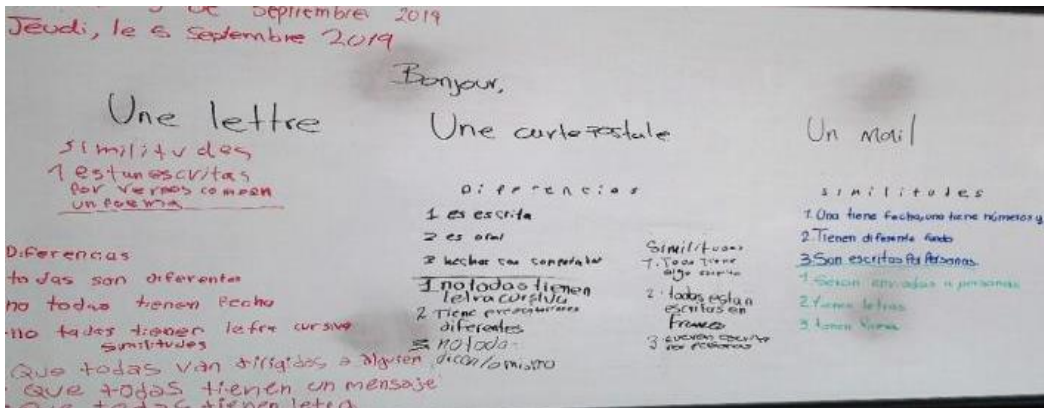 Septiembre 2019
Jeudi, le 5 Septembre 2019
Bonjour,
Une lettre
similitudes
1 estan escritas
por versos como en
un poema
Diferencias
todas son diferentes
no todas tienen fecha
no todas tienen letra cursiva
similitudes
Que todas van dirigidas a alguien
Que todas tienen un mensaje
Que todas tienen letra
Une carte postale
Diferencias
1 es escrita
2 es oral
3 hechas con computador
1 no todas tienen
letra cursiva
2 Tiene presentaciones
diferentes
3 no todas
dicen lo mismo
Similitudes
1. Todos tiene
algo escrito
2. todas estan
escritas en
Frances
3 escrito
por personas
Un mail
similitudes
1. Una tiene fecha, una tiene números y
2. Tienen diferente fondo
3. Son escritas por Personas.
1 Serán enviadas a personas
2 tienen letras
3 tienen